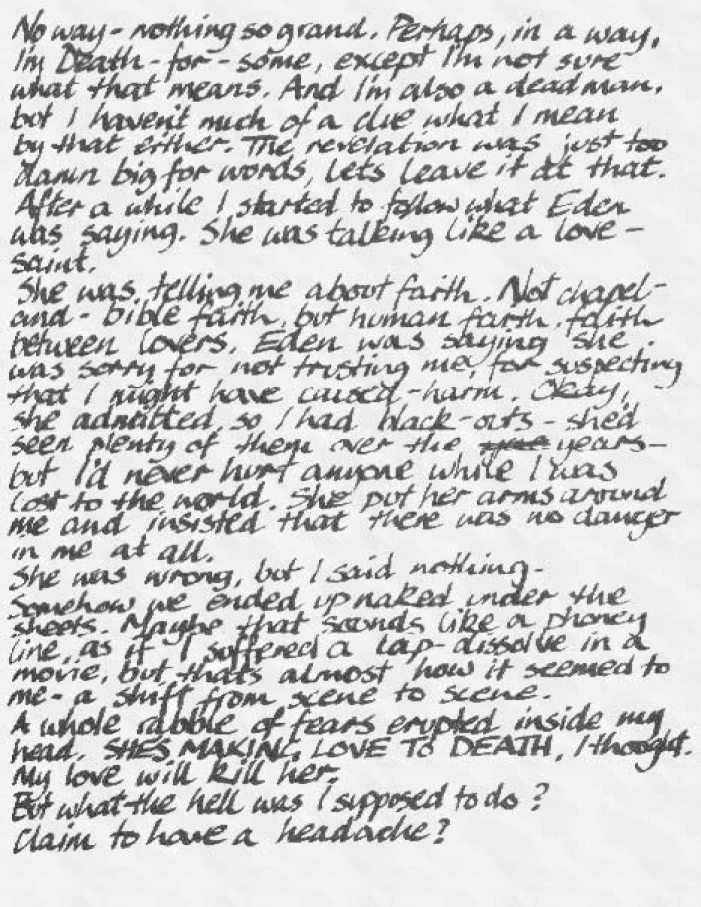 No way - nothing so grand. Perhaps, in a way,
I'm Death - for - some, except I'm not sure
what that means. And I'm also a dead man,
but I haven't much of a clue what I mean
by that either. The revelation was just too
damn big for words, let's leave it at that.
After a while I started to follow what Eden
was saying. She was talking like a love -
saint.
She was telling me about faith. Not chapel -
and - bible faith, but human faith, faith
between lovers. Eden was saying she
was sorry for not trusting me, for suspecting
that I might have caused - harm. Okay,
she admitted, so I had black-outs - she'd
seen plenty of them over the years -
but I'd never hurt anyone while I was
lost to the world. She put her arms around
me and insisted that there was no danger
in me at all.
She was wrong, but I said nothing -
Somehow we ended up naked under the
sheets. Maybe that sounds like a phoney
line, as if I suffered a lap-dissolve in a
movie, but that's almost how it seemed to
me - a shift from scene to scene.
A whole rabble of fears erupted inside my
head. SHE'S MAKING LOVE TO DEATH, I thought.
My love will kill her.
But what the hell was I supposed to do?
Claim to have a headache?